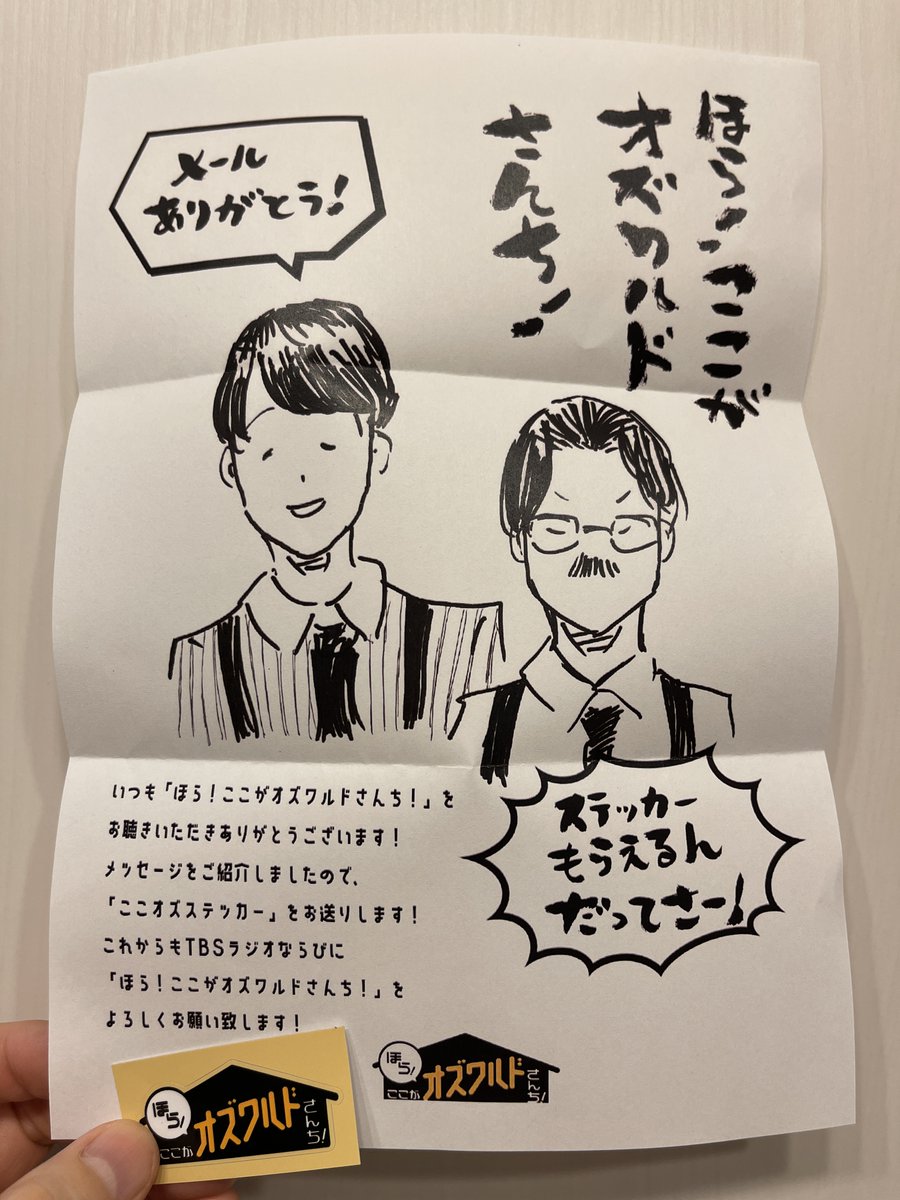 ほら!ここが
オズワルド
さんち!
メール
ありがとう!
ステッカー
もらえるん
だってさー!
いつも「ほら!ここがオズワルドさんち!」を
お聴きいただきありがとうございます!
メッセージをご紹介しましたので、
「ここオズステッカー」をお送りします!
これからもTBSラジオならびに
「ほら!ここがオズワルドさんち!」を
よろしくお願い致します!
ほら!
ここが
オズワルド
さんち!
ほら!
ここが
オズワルド
さんち!